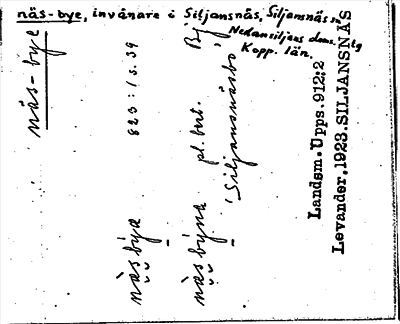 näs-bye, invånare i Siljansnäs, Siljansnäs sn
Nedansiljans doms. tg
Kopp. län.
näs-bye
näsbýa 823:1 s. 39
näsbýna pl. bst. Bj
'Siljansnäsbo'
Landsm. Upps. 912:2
Levander. 1923. SILJANSNÄS